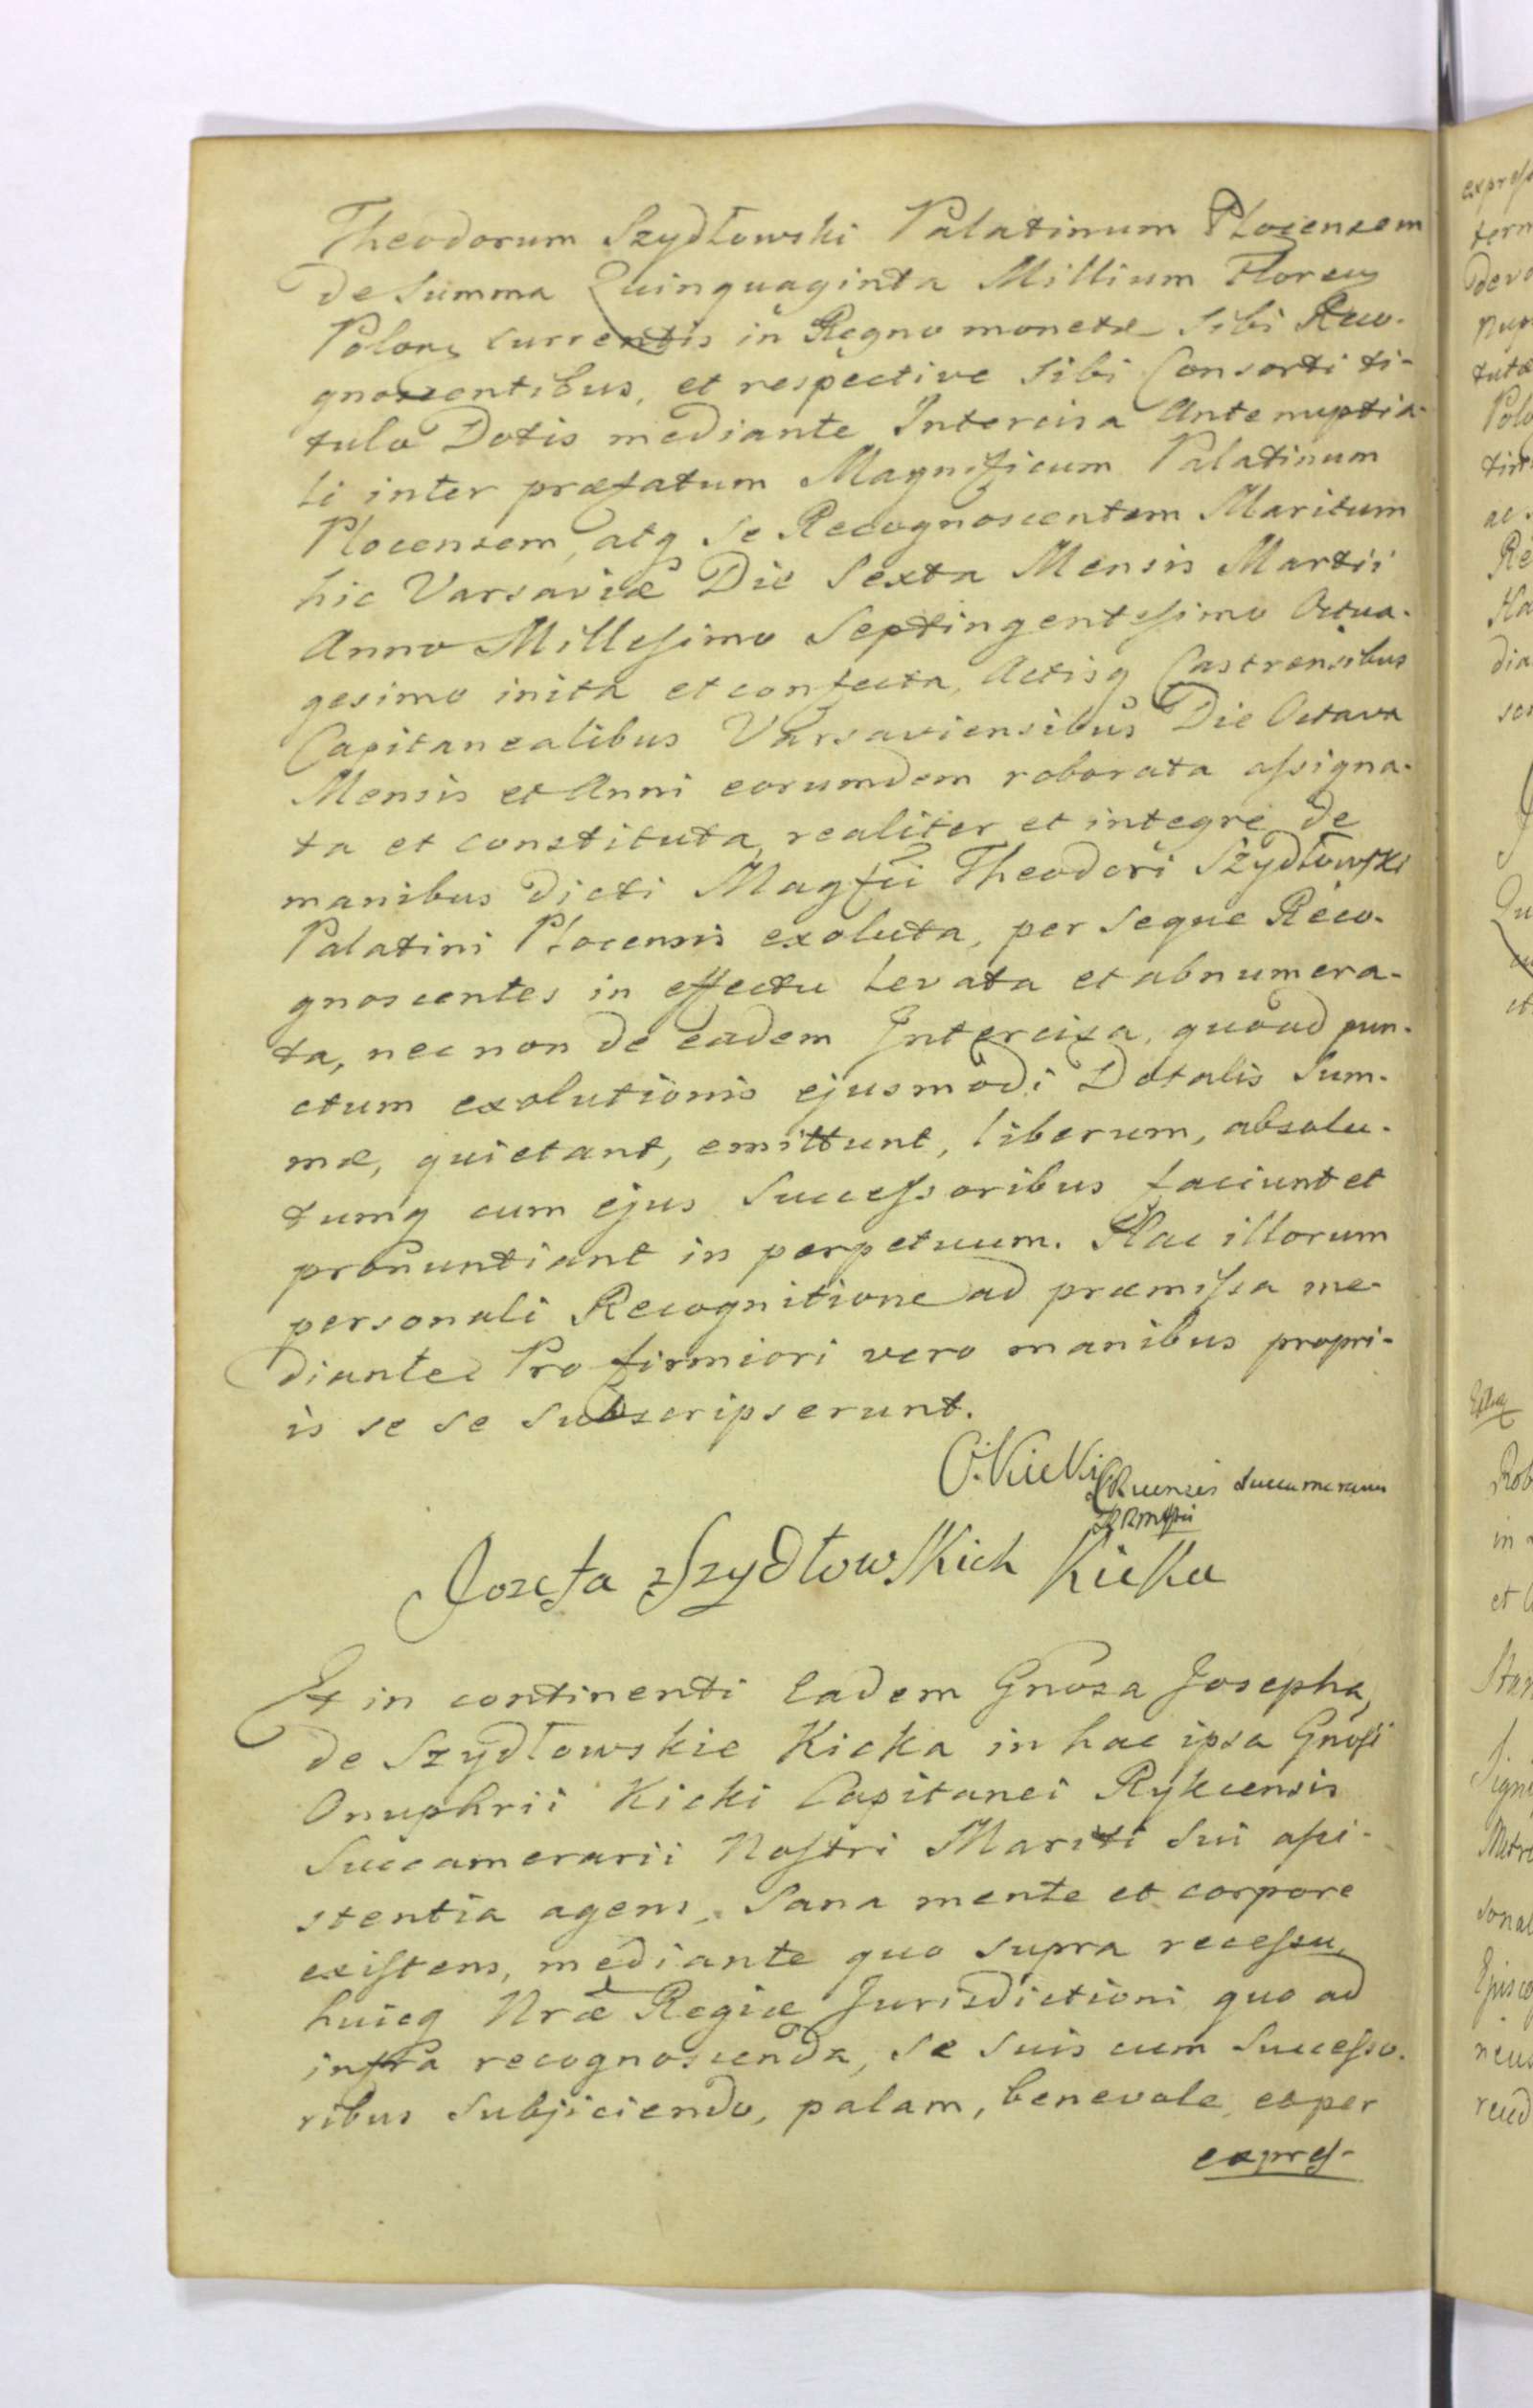 Theodorum Szydłowski Palatinum Plocensem
de Summa Quinquaginta Millium Floreų
Polonų currentis in Regno monetæ sibi Reco-
gnoscentibus, et respective sibi Consorti ti-
tulo Dotis mediante Intercisa Antenuptia-
li inter præfatum Magnificum Palatinum
Plocensem, atq se Recognoscentem Maritum
hic Varsaviæ Die Sexta Mensis Martii
Anno Millesimo Septingentesimo Octua-
gesimo inita et confecta, Actisq Castrensibus
Capitanealibus Varsaviensibus Die Octava
Mensis et Anni eorumdem roborata assigna-
ta et constituta, realiter et integre de
manibus dicti Magfci Theodori Szydłowski
Palatini Plocensis exoluta, per seque Reco-
gnoscentes in effectu levata et abnumera-
ta, nec non de eadem Intercisa, quoad pun-
ctum exolutionis ejusmodi Dotalis Sum-
mæ, quietant, emittunt, liberum, absolu-
tumq cum ejus Successoribus faciunt et
pronuntiant in perpetuum. Hac illorum
personali Recognitione ad præmissa me-
diante Pro firmiori vero manibus propri-
is se se subscripserunt.
O. Kicki Succamerarius
Jozefa z Szydłowskich Kicka
Et in continenti Eadem Gnosa Josepha,
de Szydłowskie Kicka in hac ipsa Gnosi
Onuphrii Kicki Capitanei Rykcensis
Succamerarii Nostri Mariti sui assi-
stentia agens, Sana mente et corpore
existens, mediante quo supra recessu,
huicq Nræ Regiæ Jurisdictioni quo ad
infra recognoscenda, se suis cum Successo-
ribus subjiciendo, palam, benevole, eoper
expres-